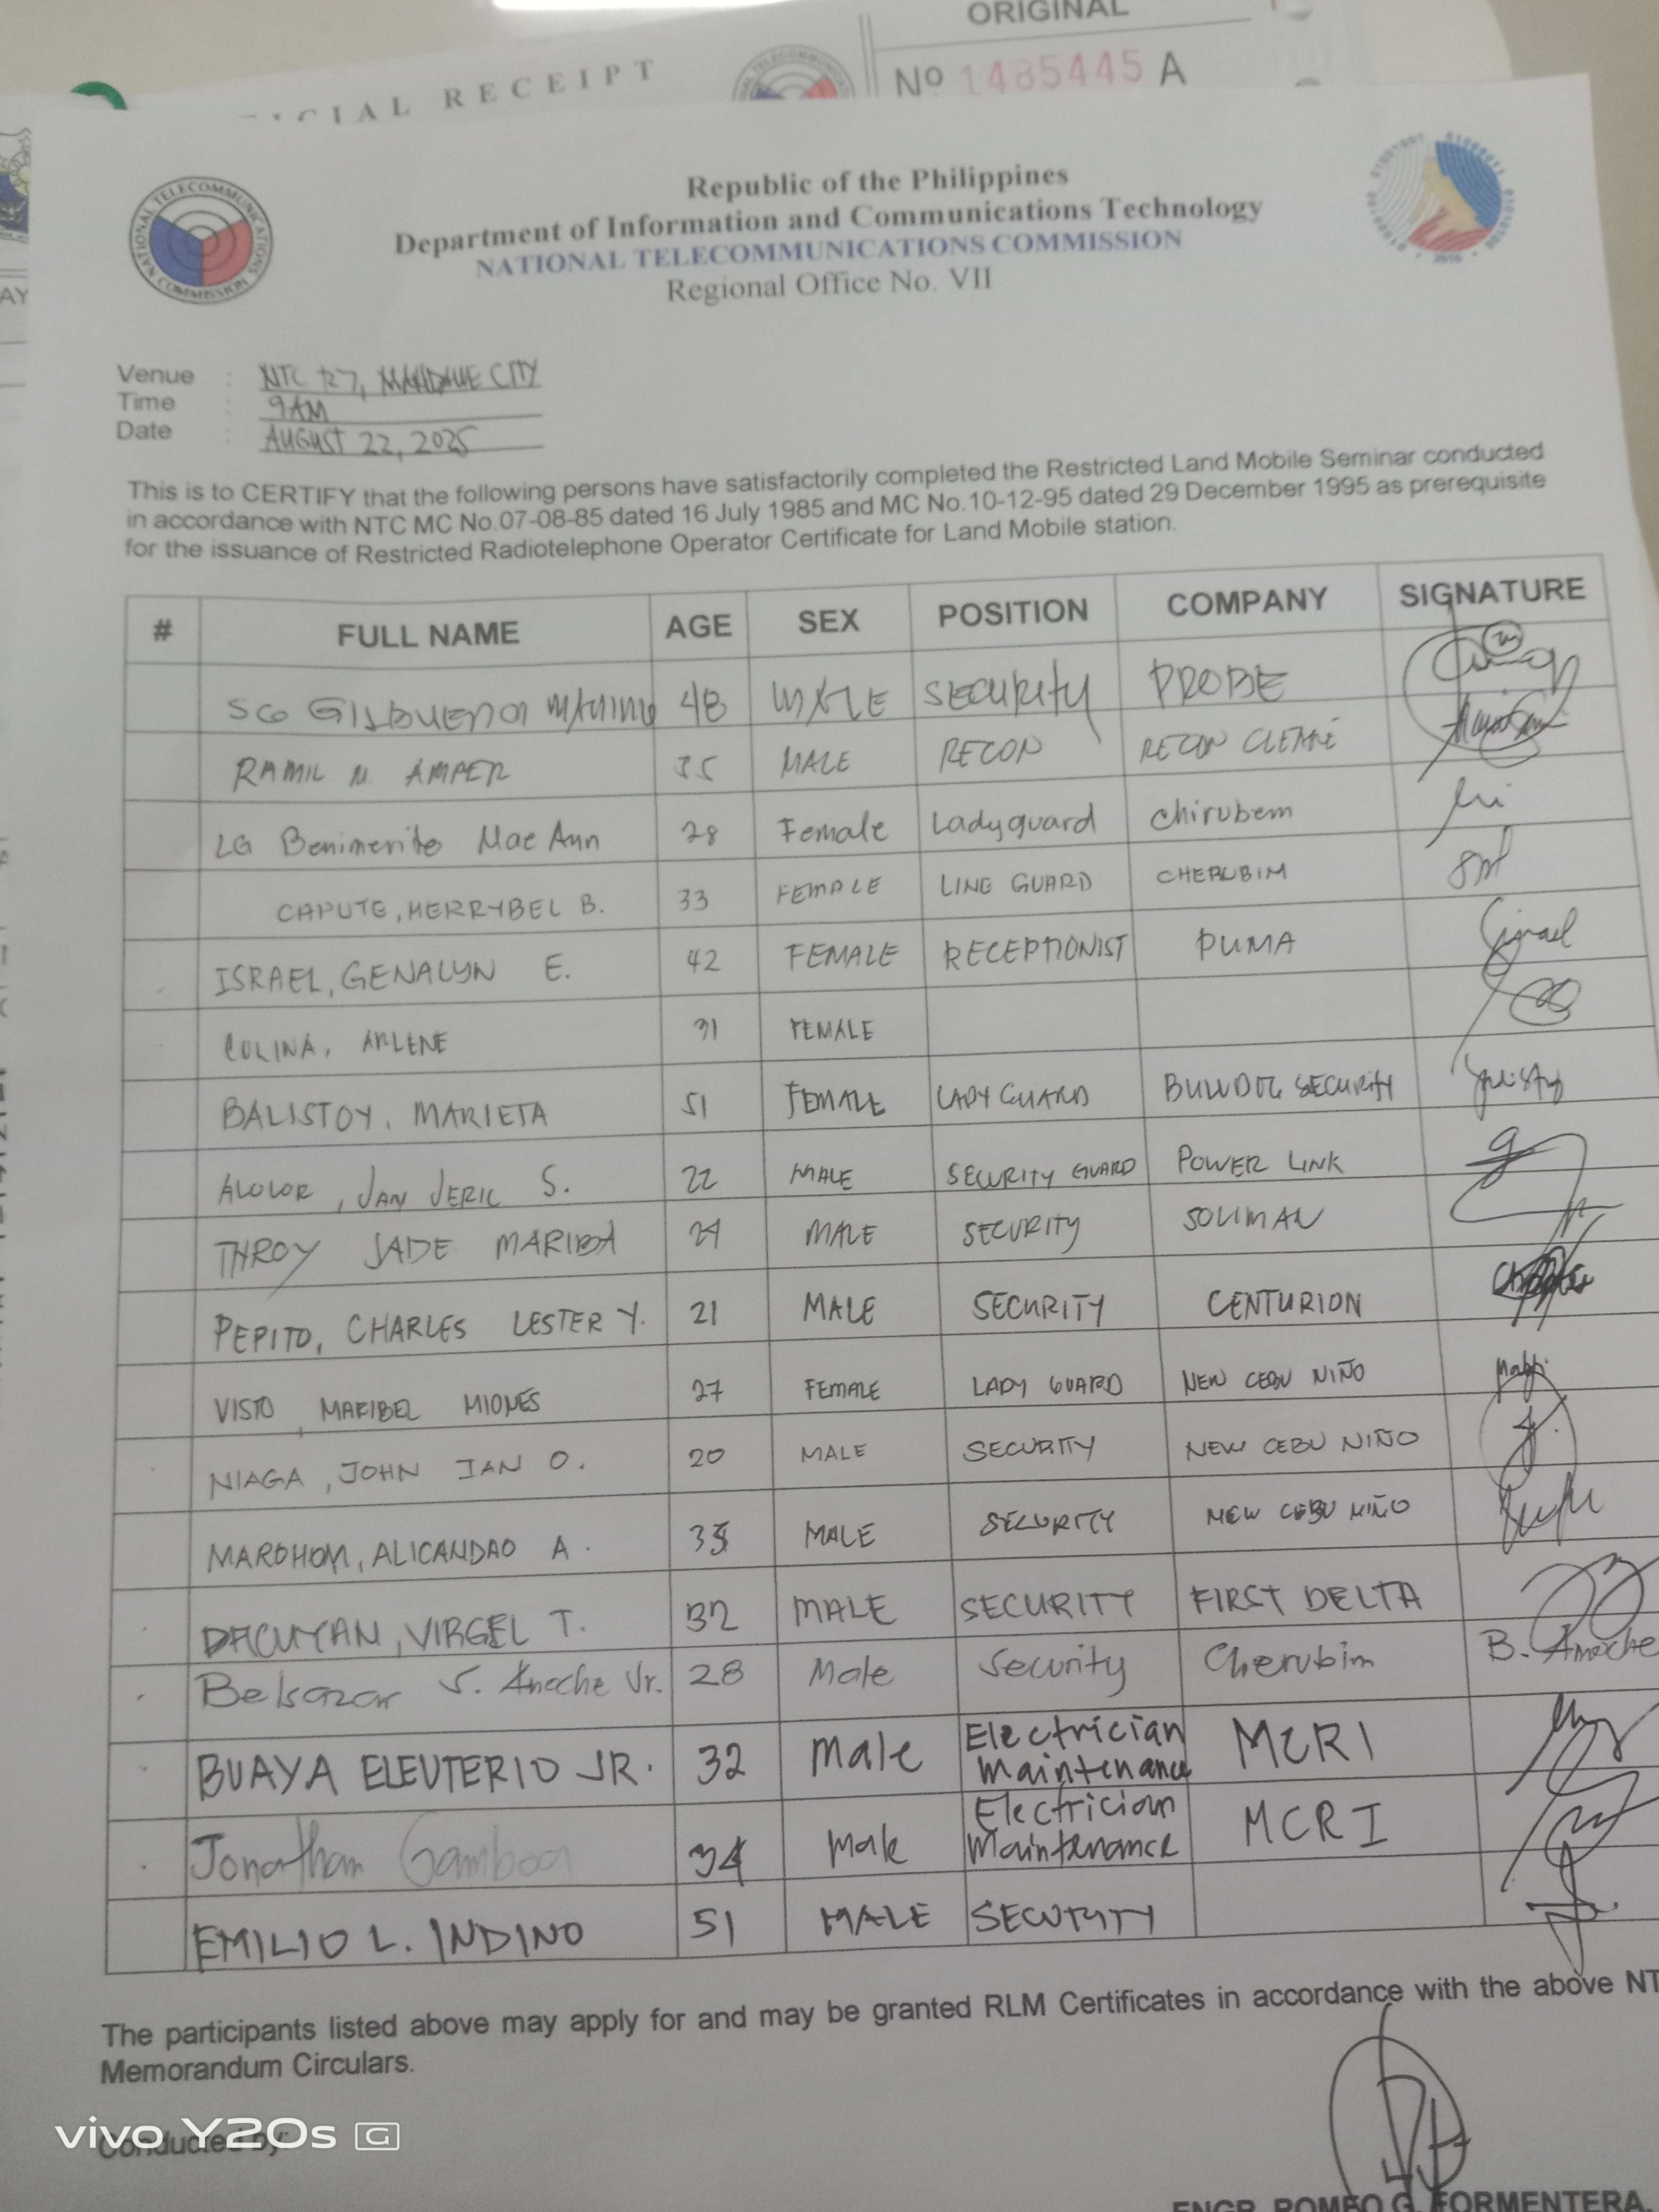 ORIGINAL
RECEIPT
Nº 1485445 A
Republic of the Philippines
Department of Information and Communications Technology
NATIONAL TELECOMMUNICATIONS COMMISSION
Regional Office No. VII
NATIONAL TELECOMMUNICATIONS COMMISSION
Venue : NTC R7, MANDAUE CITY
Time : 9AM
Date : AUGUST 22, 2025
This is to CERTIFY that the following persons have satisfactorily completed the Restricted Land Mobile Seminar conducted
in accordance with NTC MC No.07-08-85 dated 16 July 1985 and MC No.10-12-95 dated 29 December 1995 as prerequisite
for the issuance of Restricted Radiotelephone Operator Certificate for Land Mobile station.
# FULL NAME AGE SEX POSITION COMPANY SIGNATURE
SG 48 MALE SECURITY PROBE
RAMIL N. AMPER 35 MALE RECON RECON
LG Benimerito Mae Ann 28 Female Ladyguard Chirubem
CAPUTE, MERRYBEL B. 33 FEMALE LINE GUARD CHERUBIM
ISRAEL, GENALYN E. 42 FEMALE RECEPTIONIST PUMA
CULINA, ARLENE 31 FEMALE
BALISTOY, MARIETA 51 FEMALE LADY GUARD BULLDOG SECURITY
ALOLOR, JAN JERIC S. 22 MALE SECURITY GUARD POWER LINK
THROY JADE 29 MALE SECURITY SOLIMAN
PEPITO, CHARLES LESTER Y. 21 MALE SECURITY CENTURION
VISTO MARIBEL MIONES 27 FEMALE LADY GUARD NEW CEBU NIÑO
NIAGA, JOHN IAN O. 20 MALE SECURITY NEW CEBU NIÑO
MAROHOM, ALICANDAO A. 35 MALE SECURITY NEW CEBU NIÑO
DACUYAN, VIRGEL T. 32 MALE SECURITY FIRST DELTA
Belsazar S. Anoche Jr. 28 Male Security Cherubim B. Anoche
BUAYA ELEUTERIO JR. 32 Male Electrician Maintenance MCRI
Jonathan Gamboa 34 Male Electrician Maintenance MCRI
EMILIO L. INDINO 51 MALE SECURITY
The participants listed above may apply for and may be granted RLM Certificates in accordance with the above NT
Memorandum Circulars.
Conducted by:
vivo Y20s G
ENGR. ROMEO G. FORMENTERA,